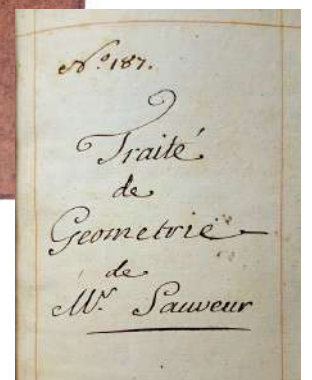 N.º 187.
Traité
de
Geometrie
de
Mr. Sauveur